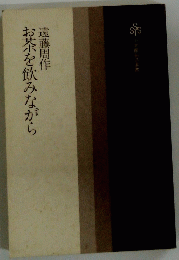 遠藤周作
お茶を飲みながら